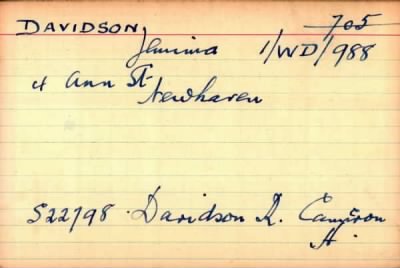 DAVIDSON, 705
Jemima 1/WD/988
4 Ann St
Newhaven
S22798 Davidson R. Cameron
H.